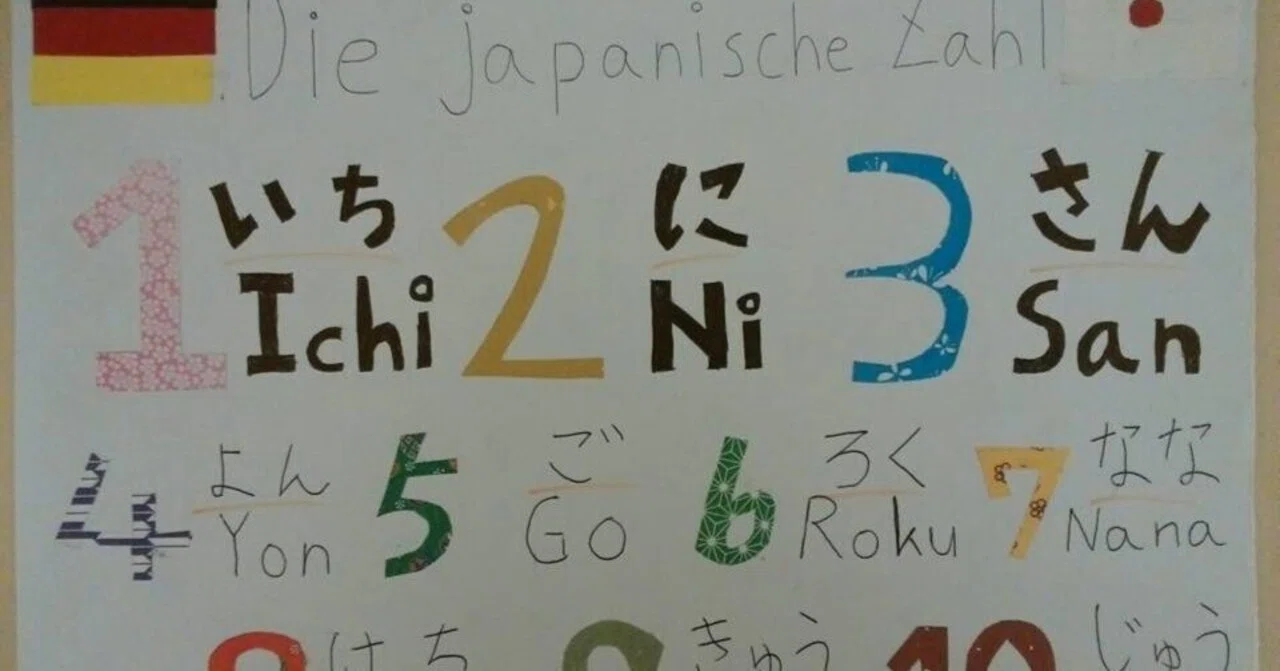 Die japanische Zahl
1 いち 2 に 3 さん
Ichi Ni San
4 よん 5 ご 6 ろく 7 なな
Yon Go Roku Nana
8 はち 9 きゅう 10 じゅう